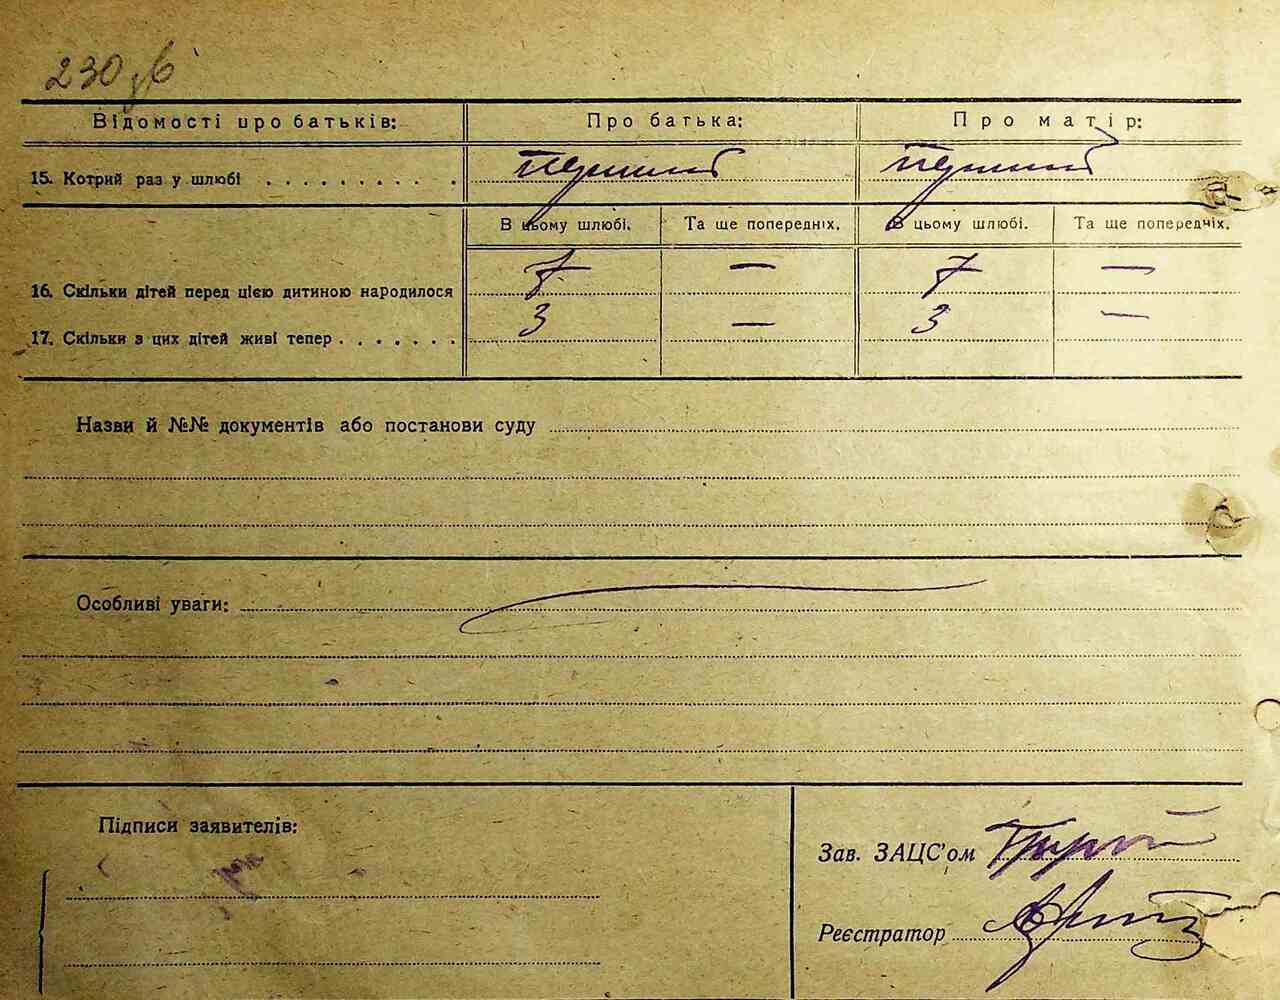 230 зв
Відомості про батьків: Про батька: Про матір:
15. Котрий раз у шлюбі . . . . . . . . . . перший перший
В цьому шлюбі. Та ще попередніх. В цьому шлюбі. Та ще попередніх.
16. Скільки дітей перед цією дитиною народилося 7 — 7 —
17. Скільки з цих дітей живі тепер . . . . . . . 3 — 3 —
Назви й №№ документів або постанови суду
Особливі уваги:
Підписи заявителів:
Зав. ЗАЦС'ом
Реєстратор